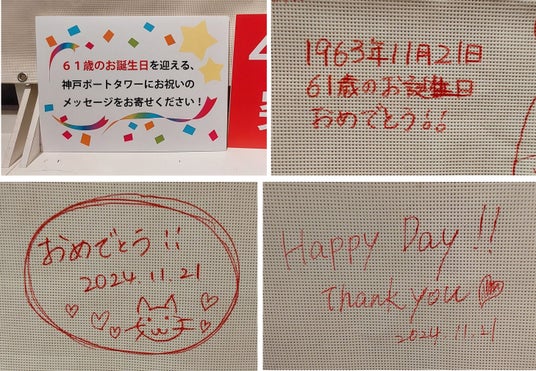 61歳のお誕生日を迎える、
神戸ポートタワーにお祝いの
メッセージをお寄せください！
1963年11月21日
61歳のお誕生日
おめでとう!!
おめでとう!!
2024.11.21
Happy Day!!
Thank you
2024.11.21